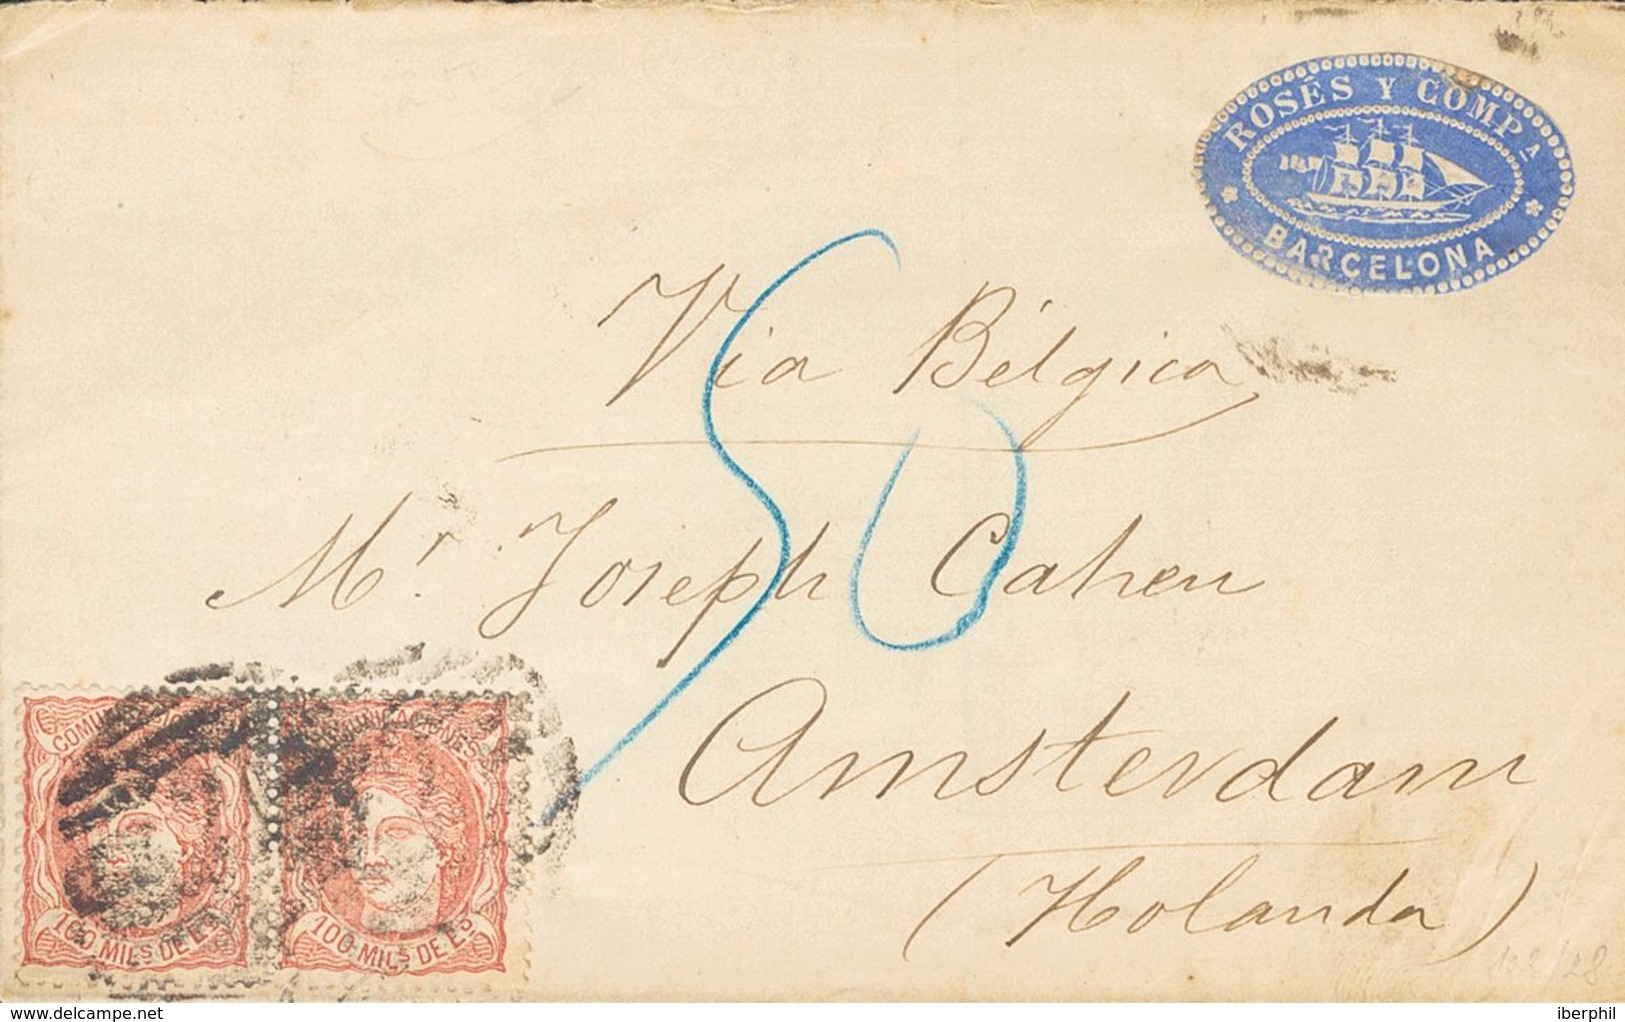 ROSÉS Y COMP.ª
BARCELONA
Via Bélgica
50
Mr. Joseph Cahen
Amsterdam
(Holanda)
COMUNICACIONES
100 MILS DE Eº
COMUNICACIONES
100 MILS DE Eº
delcampe.net
iberphil